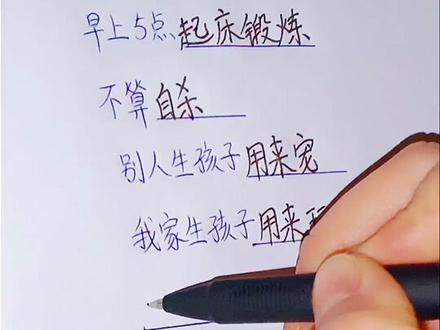 早上5点起床锻炼
不算自杀
别人生孩子用来宠
我家生孩子用来